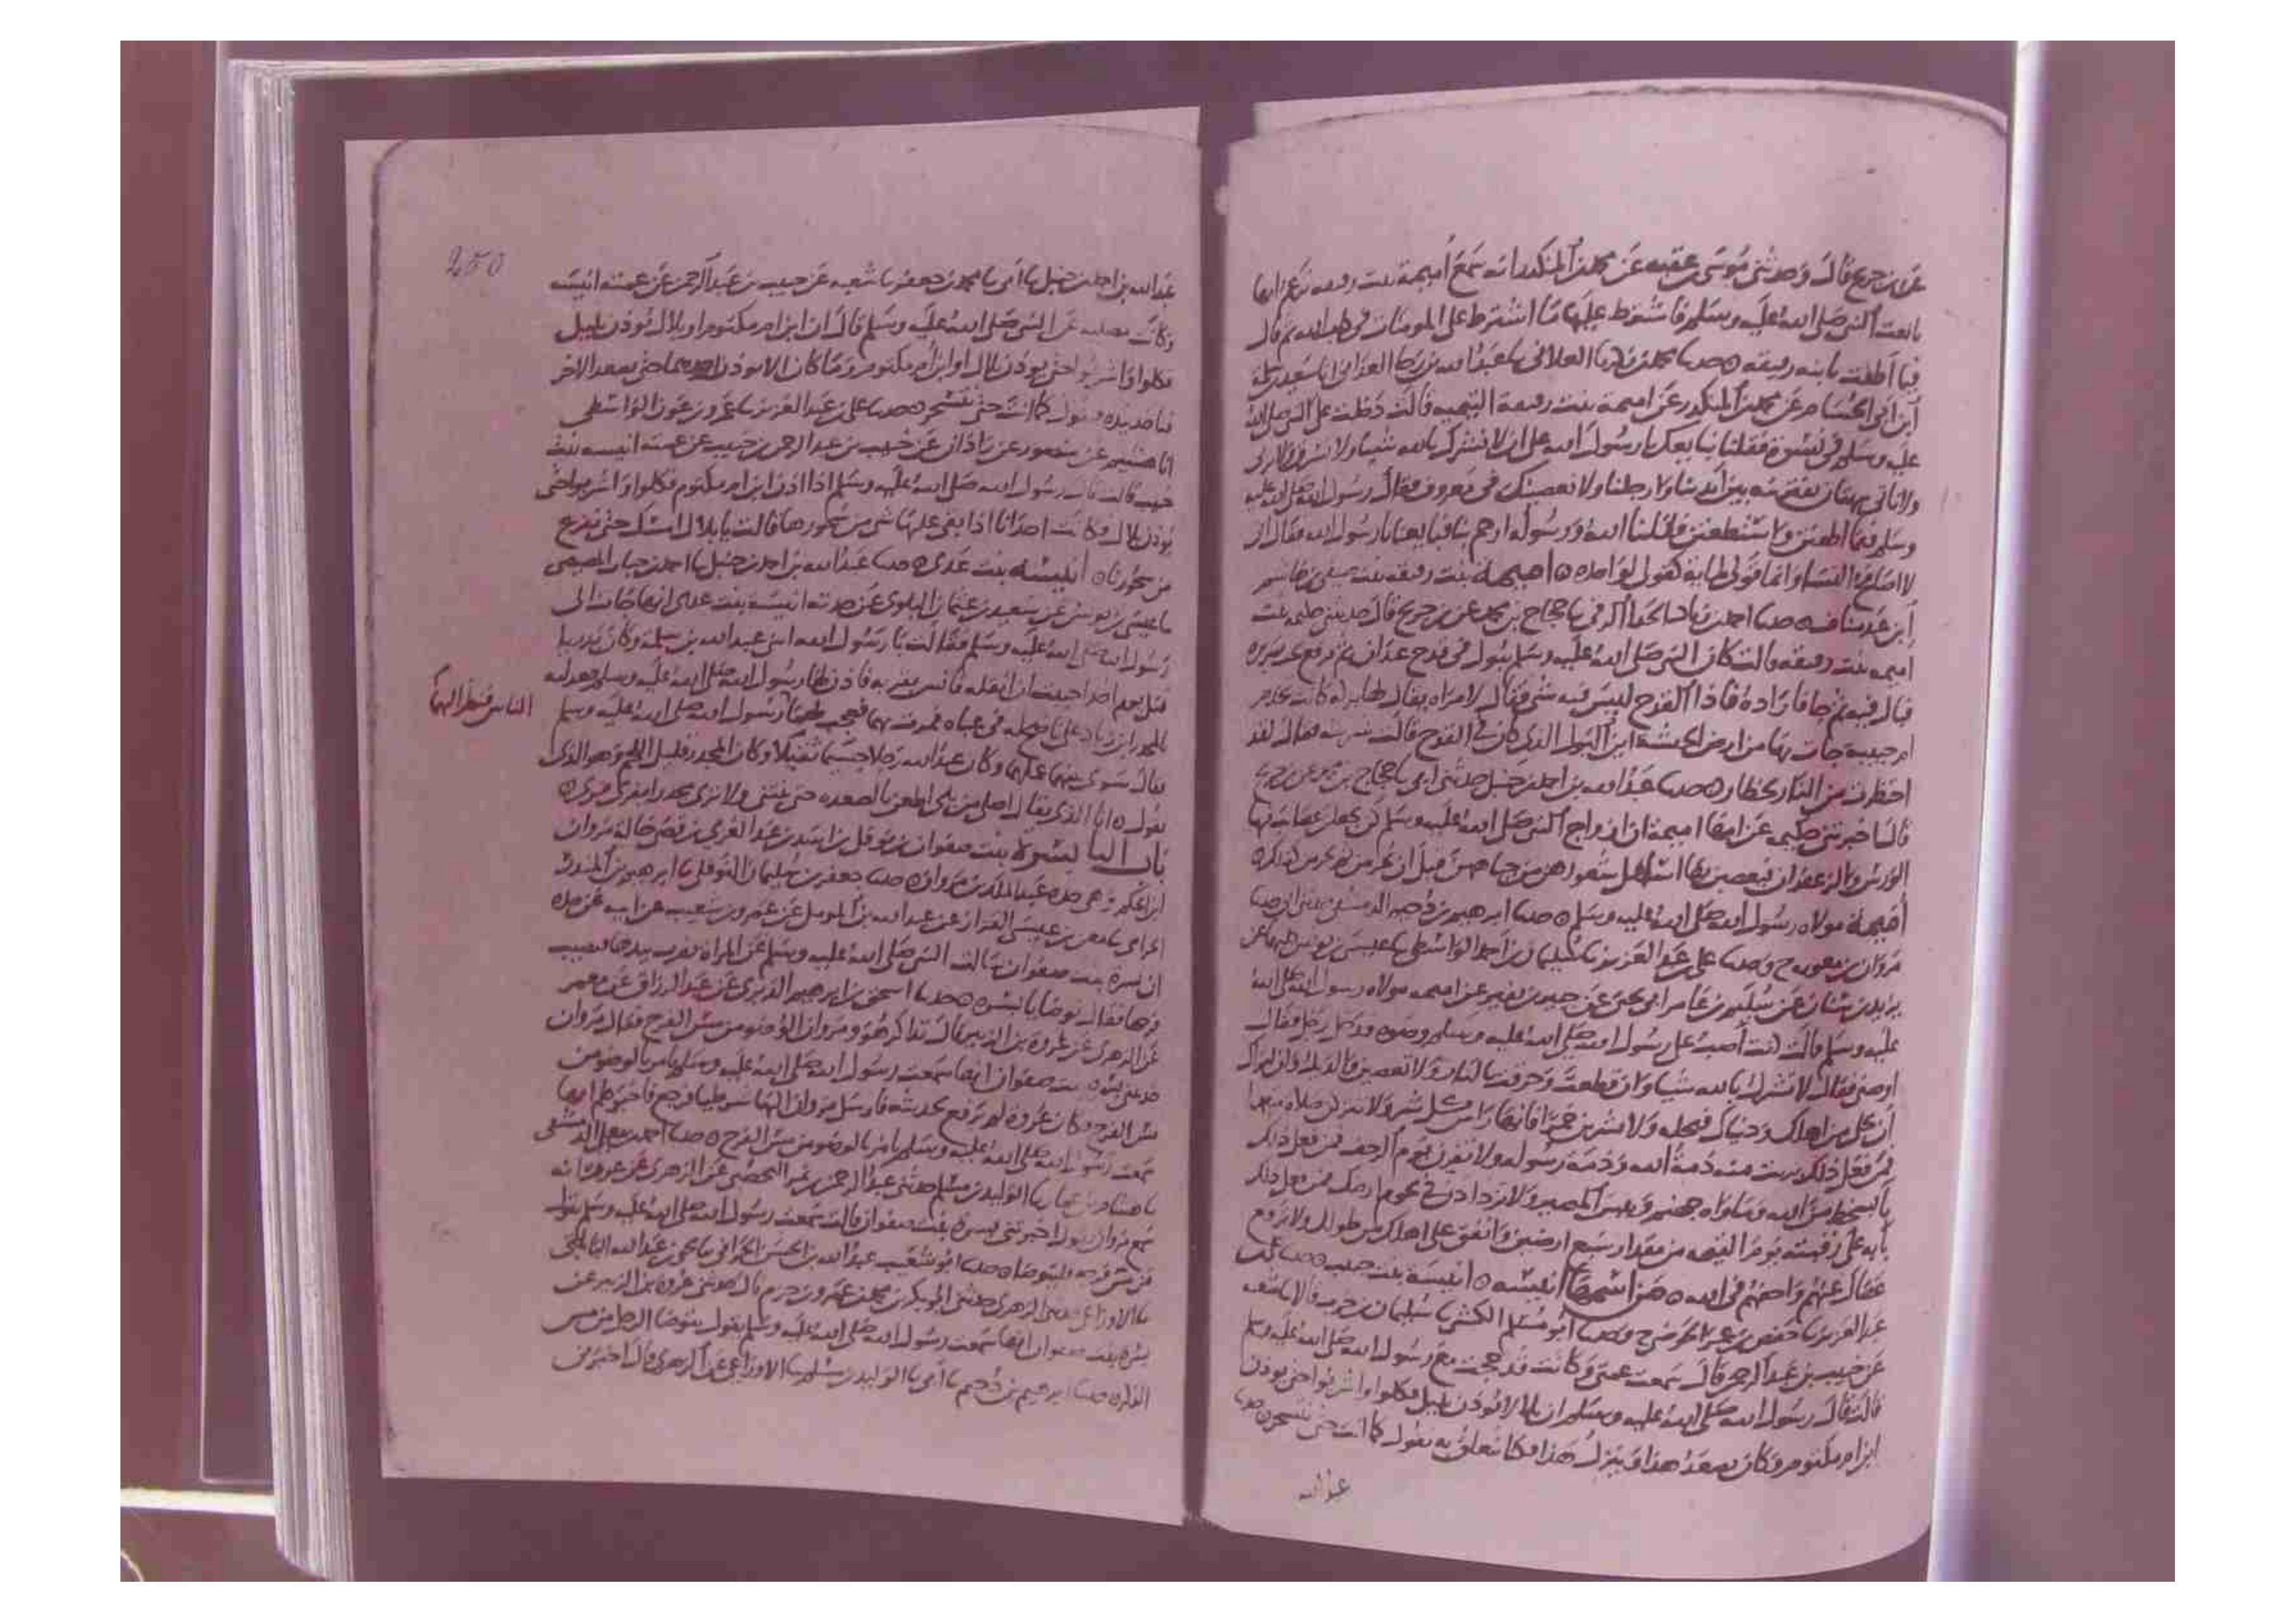 عن ابن جريج قال وحدثني موسى بن عقبة عن محمد بن المنكدر انه سمع أميمة بنت رقيقه تزعم انها
بايعت النبي صلى الله عليه وسلم فاشترط عليها ما اشترط على المومنات
فيما أطقت يا بنه رقيقه حدثنا محمد بن زكريا الغلابي نا عبد الله بن رجا الغداني انا سعيد بن سلمة
ابن ابي الحسام عن محمد بن المنكدر عن اميمة بنت رقيقة التيميه قالت دخلت على النبي صلى الله
عليه وسلم في نسوة فقلنا نبايعك يا رسول الله على ان لا نشرك بالله شيا ولا نسرق ولا نزني
ولا ناتي ببهتان نفتريه بين أيدينا وارجلنا ولا نعصينك في معروف فقال رسول الله صلى الله عليه
وسلم فيما اطقتن واستطعتن فقلنا الله ورسوله ارحم بنا فبايعنا يا رسول الله فقال اني
لا اصافح النسا وانما قولي لمايه كقولي لواحده اميمة بنت رقيقه بنت صيفي بن هاشم
ابن عبد مناف حدثنا احمد بن زياد الحذا الرقي نا حجاج بن محمد عن ابن جريج قال حدثتني حكيمه بنت
اميمه بنت رقيقه قالت كان النبي صلى الله عليه وسلم يبول في قدح عيدان ثم يوضع تحت سريره
فبال فيه ثم جا فاراده فاذا القدح ليس فيه شي فقال لامراه يقال لها بركه كانت تخدم
ام حبيبه جات بها من ارض الحبشة اين البول الذي كان في القدح قالت شربته فقال لقد
احتظرت من النار بحظار حدثنا عبد الله بن احمد بن حنبل حدثني ابي نا حجاج بن محمد عن ابن جريج
قال اخبرتني حكيمه عن امها اميمة ان ازواج النبي صلى الله عليه وسلم كن يجعلن عصائب فيها
الورس والزعفران فيعصبن بها اسافل شعورهن من جباههن قبل ان يحرمن ثم يحرمن كذلك
أميمة مولاه رسول الله صلى الله عليه وسلم حدثنا ابراهيم بن دحيم الدمشقي حدثني ابي نا
مروان بن معويه ح وحدثنا علي بن عبد العزيز نا سليمان بن احمد الواسطي نا عيسى بن يونس كلاهما عن
يزيد بن سنان عن سليم بن عامر ابي يحيى عن جبير بن نفير عن اميمه مولاه رسول الله صلى الله
عليه وسلم قالت كنت أصب على رسول الله صلى الله عليه وسلم وضوه فدخل رجل فقال
اوصني فقال لا تشرك بالله شيا وان قطعت وحرقت بالنار ولا تعصين والديك وان امراك
أن تخلى من اهلك ودنياك فتخله ولا تشربن خمرا فانها راس كل شر ولا تتركن صلاه متعمدا
فمن فعل ذلك برئت منه ذمة الله وذمة رسوله ولا تفرن يوم الزحف فمن فعل ذلك
با بسخط من الله وماواه جهنم وبيس المصير ولا تزدادن في تخوم ارضك فمن فعل ذلك
يأتي به على رقبته يوم القيمه من مقدار سبع ارضين وانفق على اهلك من طولك ولا ترفع
عصاك عنهم واخفهم في الله من اسمها أنيسه انيسة بنت خبيب حدثنا علي بن
عبد العزيز نا حفص بن عمر الحوضي ح وحدثنا أبو مسلم الكشي نا سليمان بن حرب قالا نا شعبه
عن خبيب بن عبد الرحمن قال سمعت عمتي وكانت قد حجت مع رسول الله صلى الله عليه وسلم
قالت قال رسول الله صلى الله عليه وسلم ان بلالا يوذن بليل فكلوا واشربوا حتى يوذن
ابن ام مكتوم وكان يصعد هذا وينزل هذا فكنا نتعلق به نقول كما انت حتى نتسحر حدثنا
عبد الله
250
عبد الله بن احمد بن حنبل نا أبي نا محمد بن جعفر نا شعبه عن خبيب بن عبد الرحمن عن عمته انيسه
وكانت مصليه عن النبي صلى الله عليه وسلم قال ان ابن ام مكتوم او بلال يوذن بليل
فكلوا واشربوا حتى يوذن بلال او ابن ام مكتوم وما كان الا يوذن احدهما حتى يصعد الاخر
فناخذ بيده ونقول كما انت حتى نتسحر حدثنا علي بن عبد العزيز نا عمرو بن عون الواسطي
انا هشيم عن منصور بن زاذان عن خبيب بن عبد الرحمن بن خبيب عن عمته انيسه بنت
خبيب قالت قال رسول الله صلى الله عليه وسلم اذا اذن ابن ام مكتوم فكلوا واشربوا حتى
يوذن بلال وكانت احدانا اذا بقي عليها شي من سحورها قالت يا بلال امسك حتى نفرغ
من سحورنا أنيسه بنت عدي حدثنا عبد الله بن احمد بن حنبل نا احمد بن جناب المصيصي
نا عيسى بن يونس عن سعيد بن عثمان البلوي عن جدته انيسه بنت عدي انها جات الى
رسول الله صلى الله عليه وسلم فقالت يا رسول الله ابني عبد الله بن سلمه وكان بدريا
قتل يوم احد احببت ان انقله فانس بقربه فاذن لها رسول الله صلى الله عليه وسلم فعدلته
بالمجدر بن زياد على ناضح له في عباه فمرت بهما فعجب لهما رسول الله صلى الله عليه وسلم
الناس فنظر اليهما
فقال سوى بينهما عملهما وكان عبد الله رجلا جسيما ثقيلا وكان المجدر قليل اللحم وهو الذي
يقول انا الذي يقال اصلي من بلي اطعن بالصعده حتى تنثني ولا ترى مجدرا يفري فري
باب البا بسرة بنت صفوان بن نوفل بن اسد بن عبد العزى بن قصي خالة مروان
ابن الحكم وهي جده عبد الملك بن مروان حدثنا جعفر بن سليمان النوفلي نا ابرهيم بن المنذر
الحزامي نا معن بن عيسى القزاز عن عبد الله بن المومل عن عمرو بن شعيب عن ابيه عن جده
ان بسرة بنت صفوان سالت النبي صلى الله عليه وسلم عن المراه تضرب بيدها فتصيب
فرجها فقال توضا يا بسره حدثنا اسحق بن ابرهيم الدبري عن عبد الرزاق عن معمر
عن الزهري عن عروة بن الزبير قال تذاكر هو ومروان الوضو من مس الفرج فقال مروان
حدثتني بسره بنت صفوان انها سمعت رسول الله صلى الله عليه وسلم يامر بالوضو من
مس الفرج وكان عروة لم يرفع بحديثه فارسل مروان اليها شرطيا فرجع فاخبرهم انها
سمعت رسول الله صلى الله عليه وسلم يامر بالوضو من مس الفرج حدثنا احمد بن المعلى الدمشقي
نا هشام بن عمار نا الوليد بن مسلم حدثني عبد الرحمن بن نمر اليحصبي عن الزهري عن عروه انه
سمع مروان يقول اخبرتني بسره بنت صفوان قالت سمعت رسول الله صلى الله عليه وسلم يقول
من مس فرجه فليتوضا حدثنا ابو شعيب عبد الله بن الحسن الحراني نا يحيى بن عبد الله البابلتي
نا الاوزاعي حدثني الزهري حدثني ابو بكر بن محمد بن عمرو بن حزم قال حدثني عروة بن الزبير عن
بسره بنت صفوان انها سمعت رسول الله صلى الله عليه وسلم يقول يتوضا الرجل من مس
الذكر حدثنا ابرهيم بن دحيم نا أبي نا الوليد بن مسلم نا الاوزاعي عن الزهري قال اخبرني